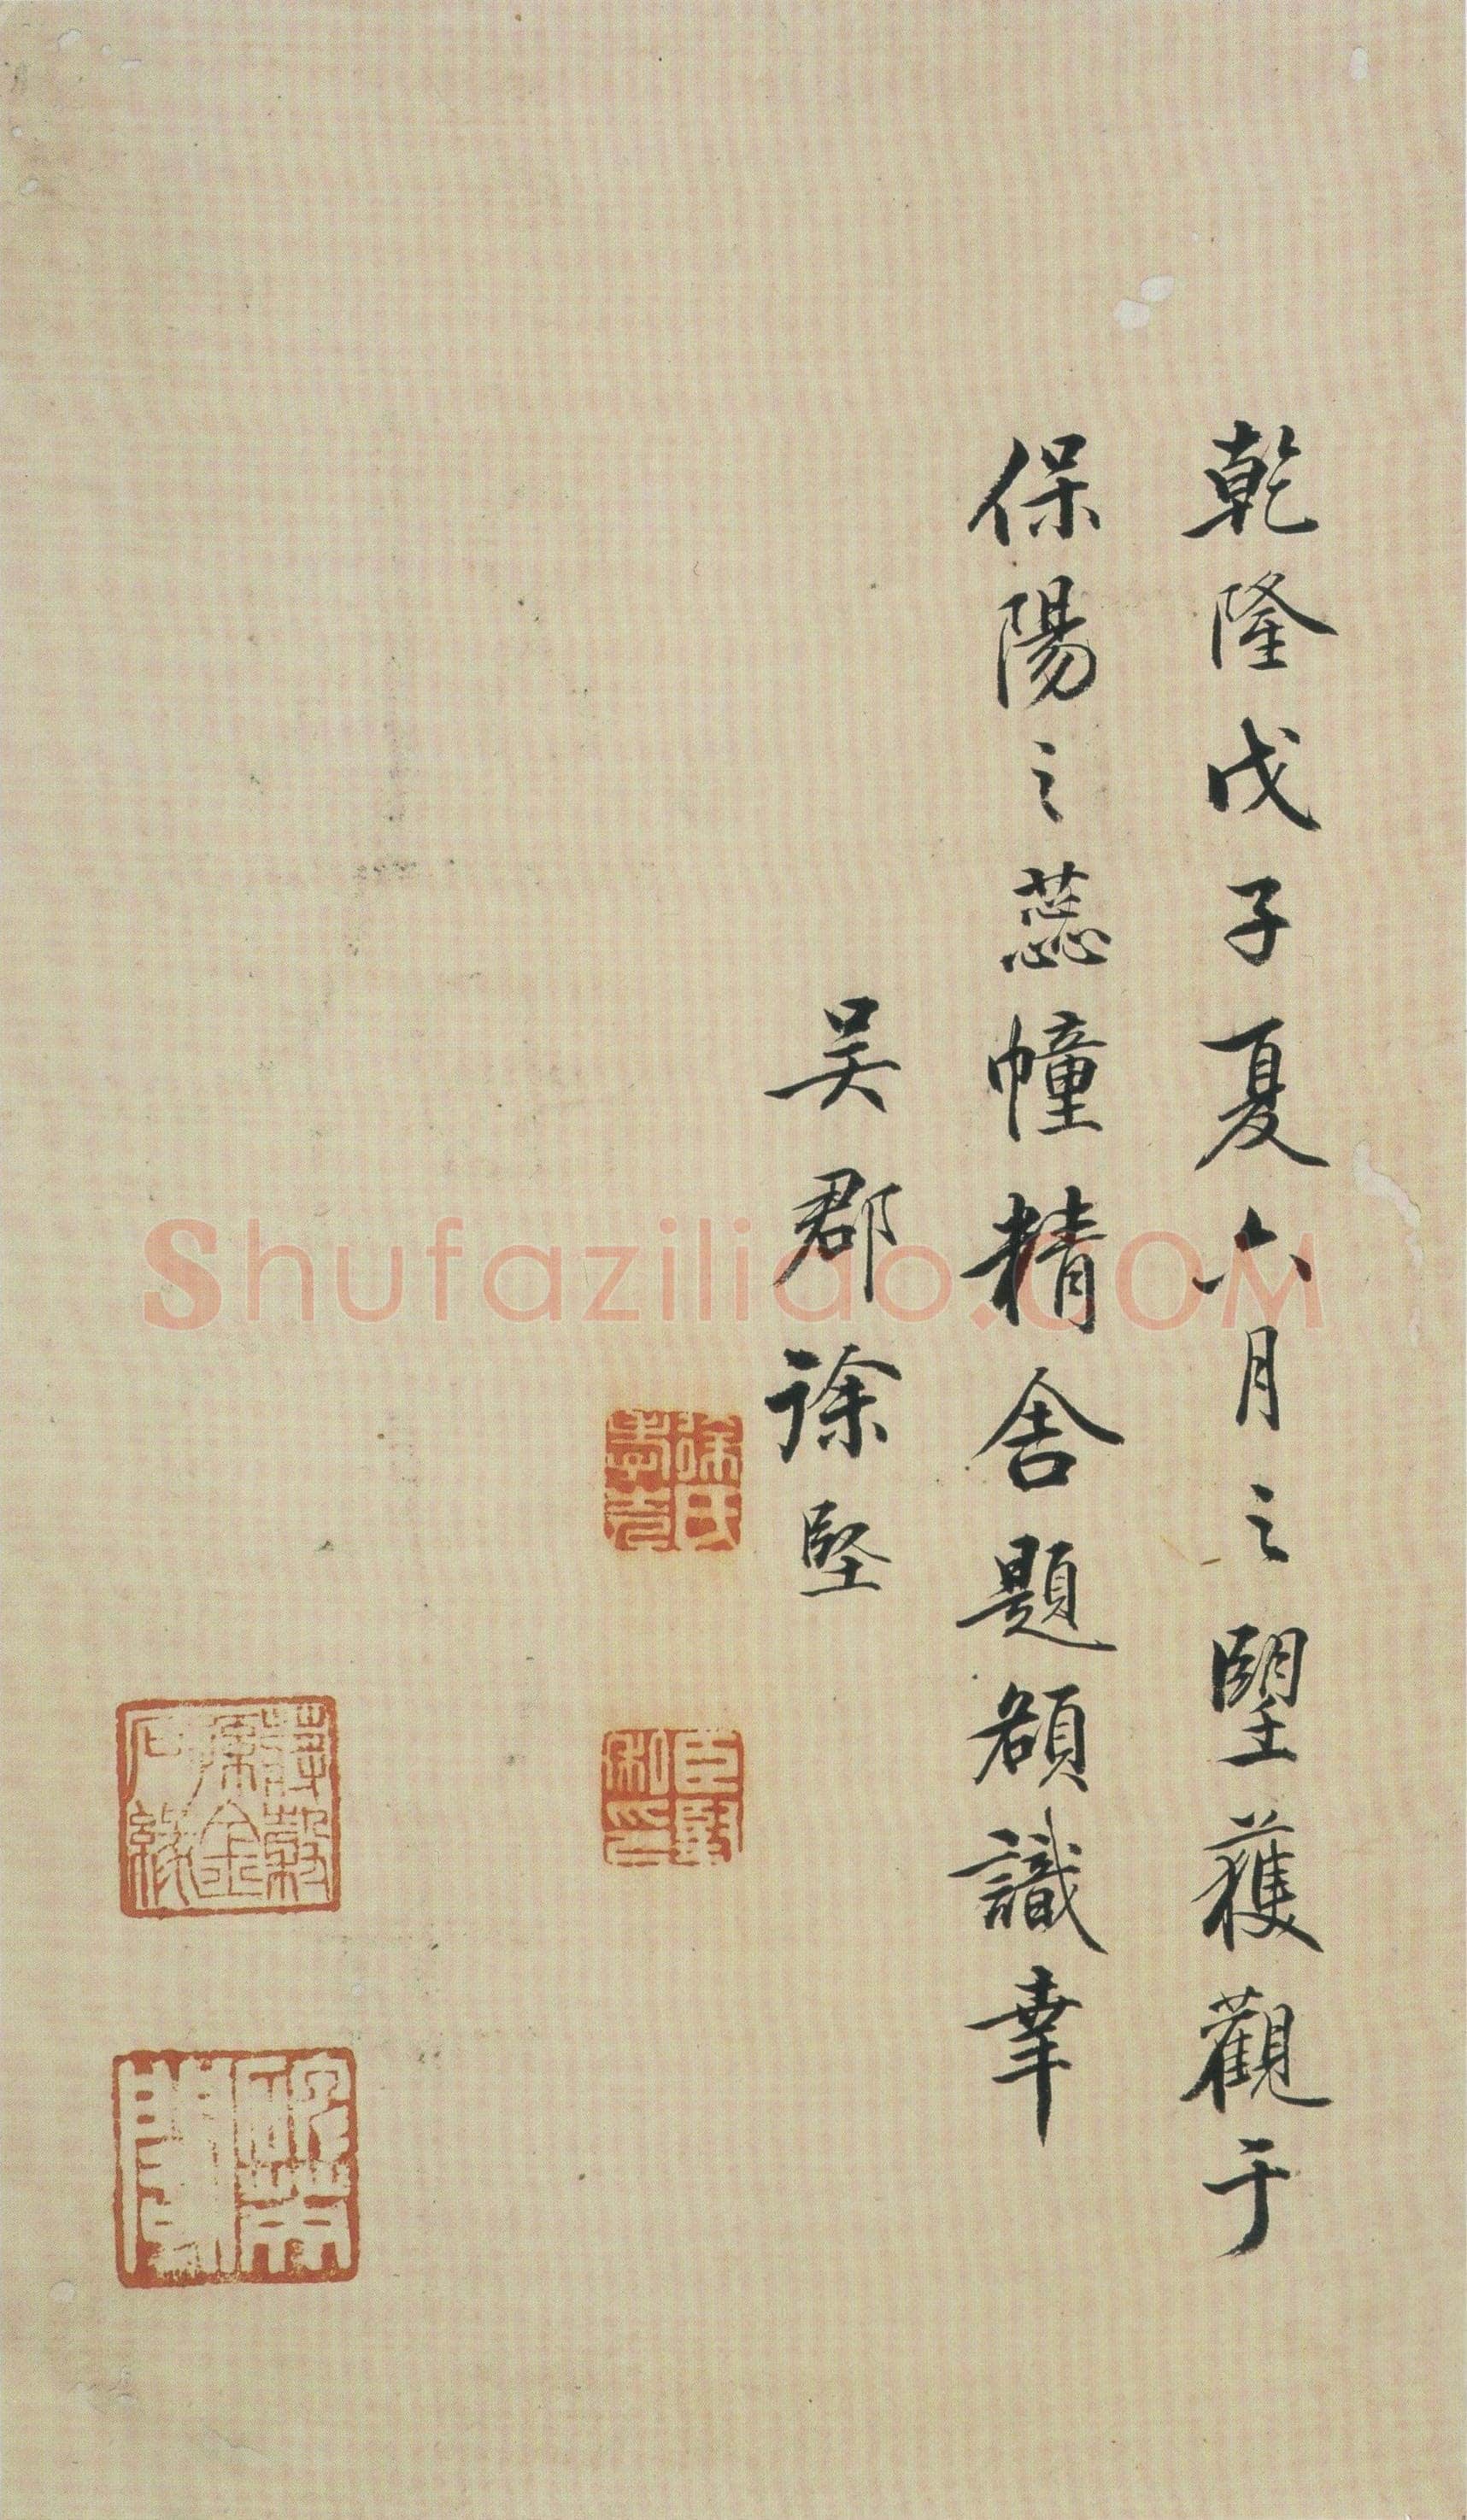 乾隆戊子夏六月之朢獲觀于
保陽之蕊幢精舍題額識幸
吴郡徐堅
徐氏孝先
臣堅私印
Shufaziliao.COM